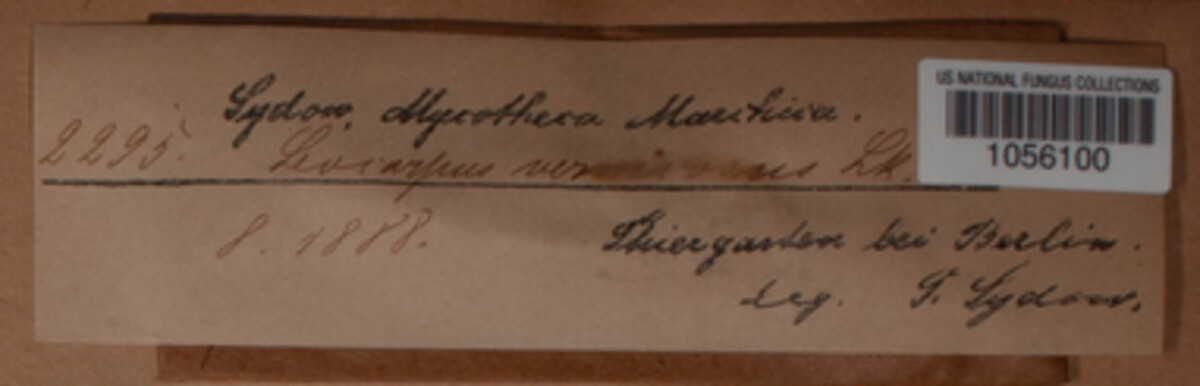 Sydow, Mycotheca Marchica.
US NATIONAL FUNGUS COLLECTIONS
1056100
2295. Leocarpus Lk.
8. 1888.
Thiergarten bei Berlin.
leg. P. Sydow.